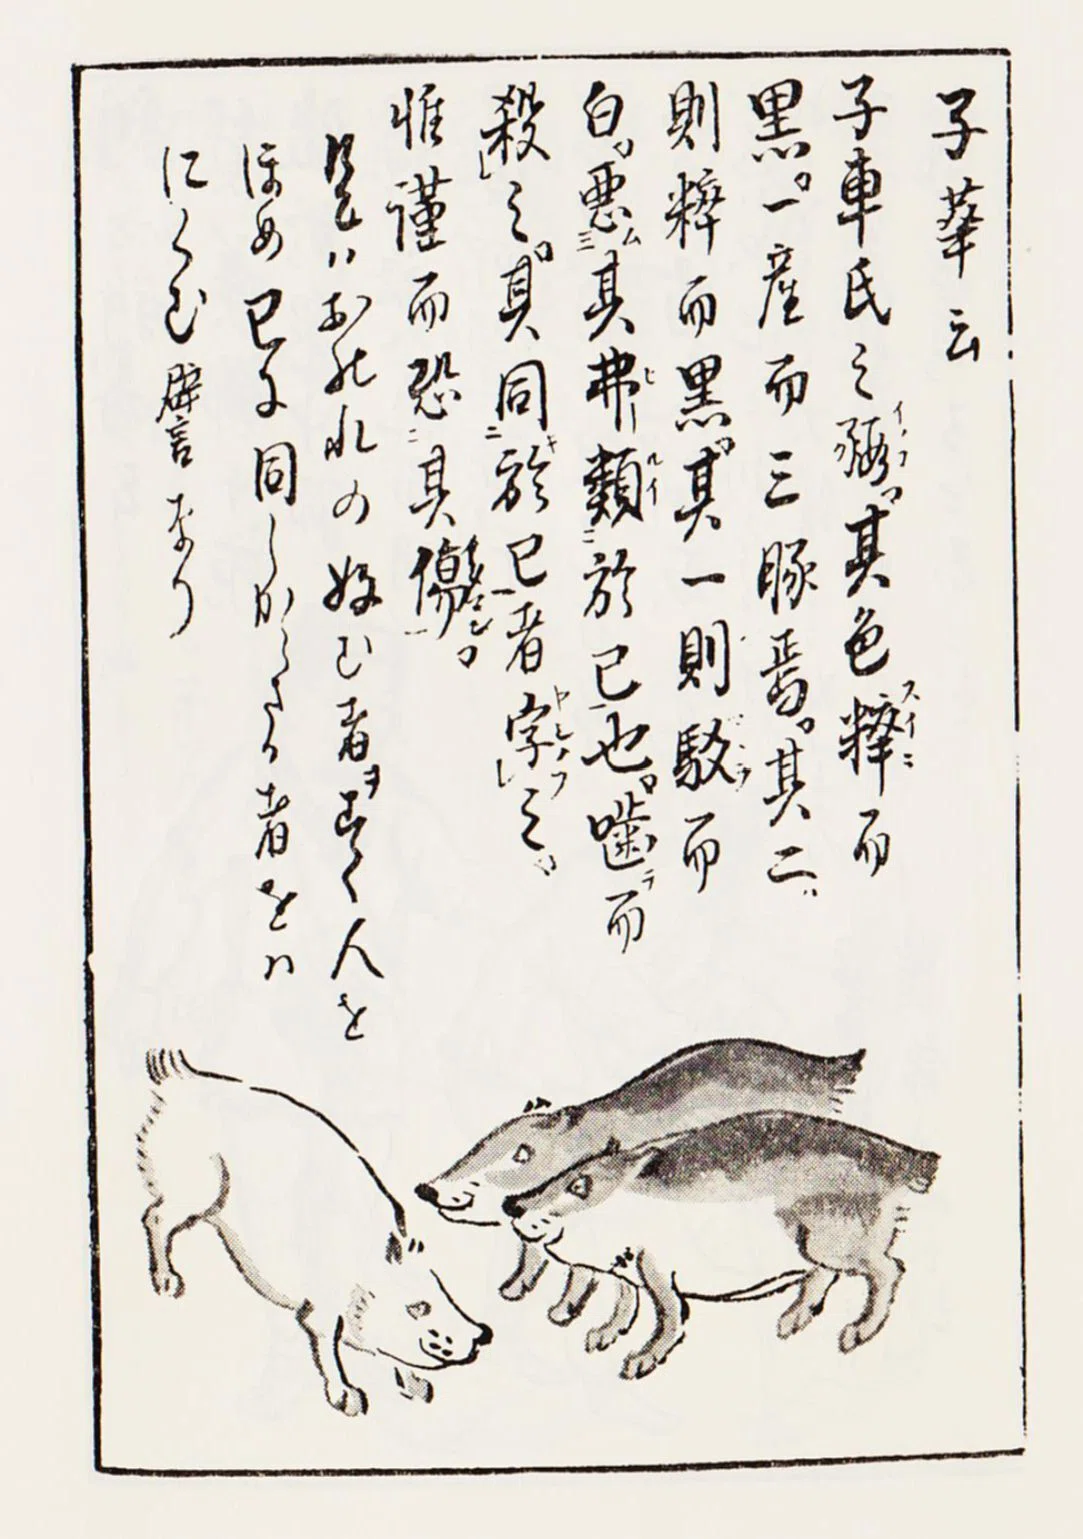 子華云
子車氏之豭。其色粹而
黒。一産而三豚焉。其二
則粹而黒。其一則駁而
白。悪其弗類於己也。噛而
殺之。其同於己者字之。
惟謹而恐其傷。
是ハおのれの好む者ヲすく人を
ほめ己に同しからさる者をハ
にくむ譬なり